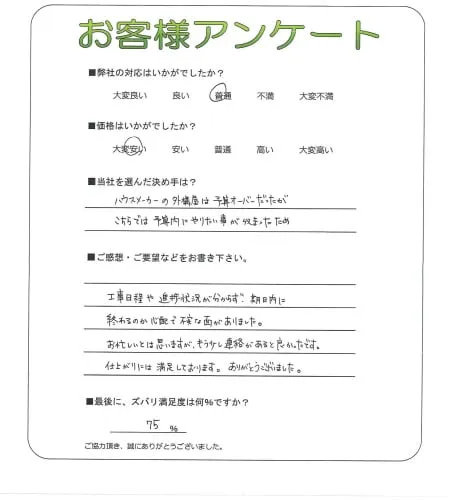 お客様アンケート
■弊社の対応はいかがでしたか?
大変良い 良い 普通 不満 大変不満
■価格はいかがでしたか?
大変安い 安い 普通 高い 大変高い
■当社を選んだ決め手は?
ハウスメーカーの外構屋は予算オーバーだったが
こちらでは予算内にやりたい事が収まったため
■ご感想・ご要望などをお書き下さい。
工事日程や進捗状況が分からず、期日内に
終わるのか心配で不安な面がありました。
お忙しいとは思いますが、もう少し連絡があると良かったです。
仕上がりには満足しております。ありがとうございました。
■最後に、ズバリ満足度は何%ですか?
75 %
ご協力頂き、誠にありがとうございました。